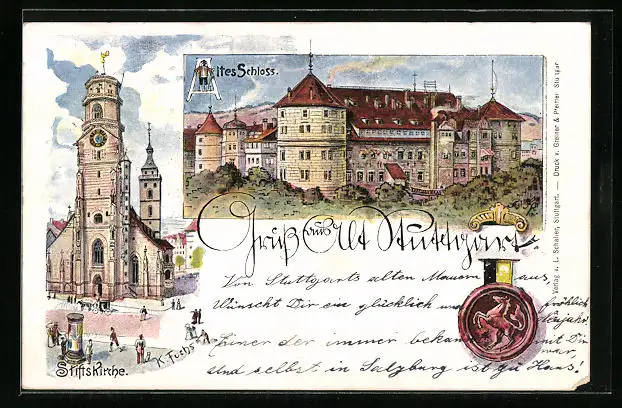 Altes Schloss.
Gruß aus Alt Stuttgart.
Von Stuttgarts alten Mauern aus,
Wünscht Dir ein glücklich und fröhlich
Neujahr
Einer der immer bekannt mit Dir
war,
Und selbst in Salzburg ist zu Haus!
K. Fuchs
Stiftskirche.
Verlag v. L. Schaller, Stuttgart. — Druck v. Greiner & Pfeiffer Stuttgart